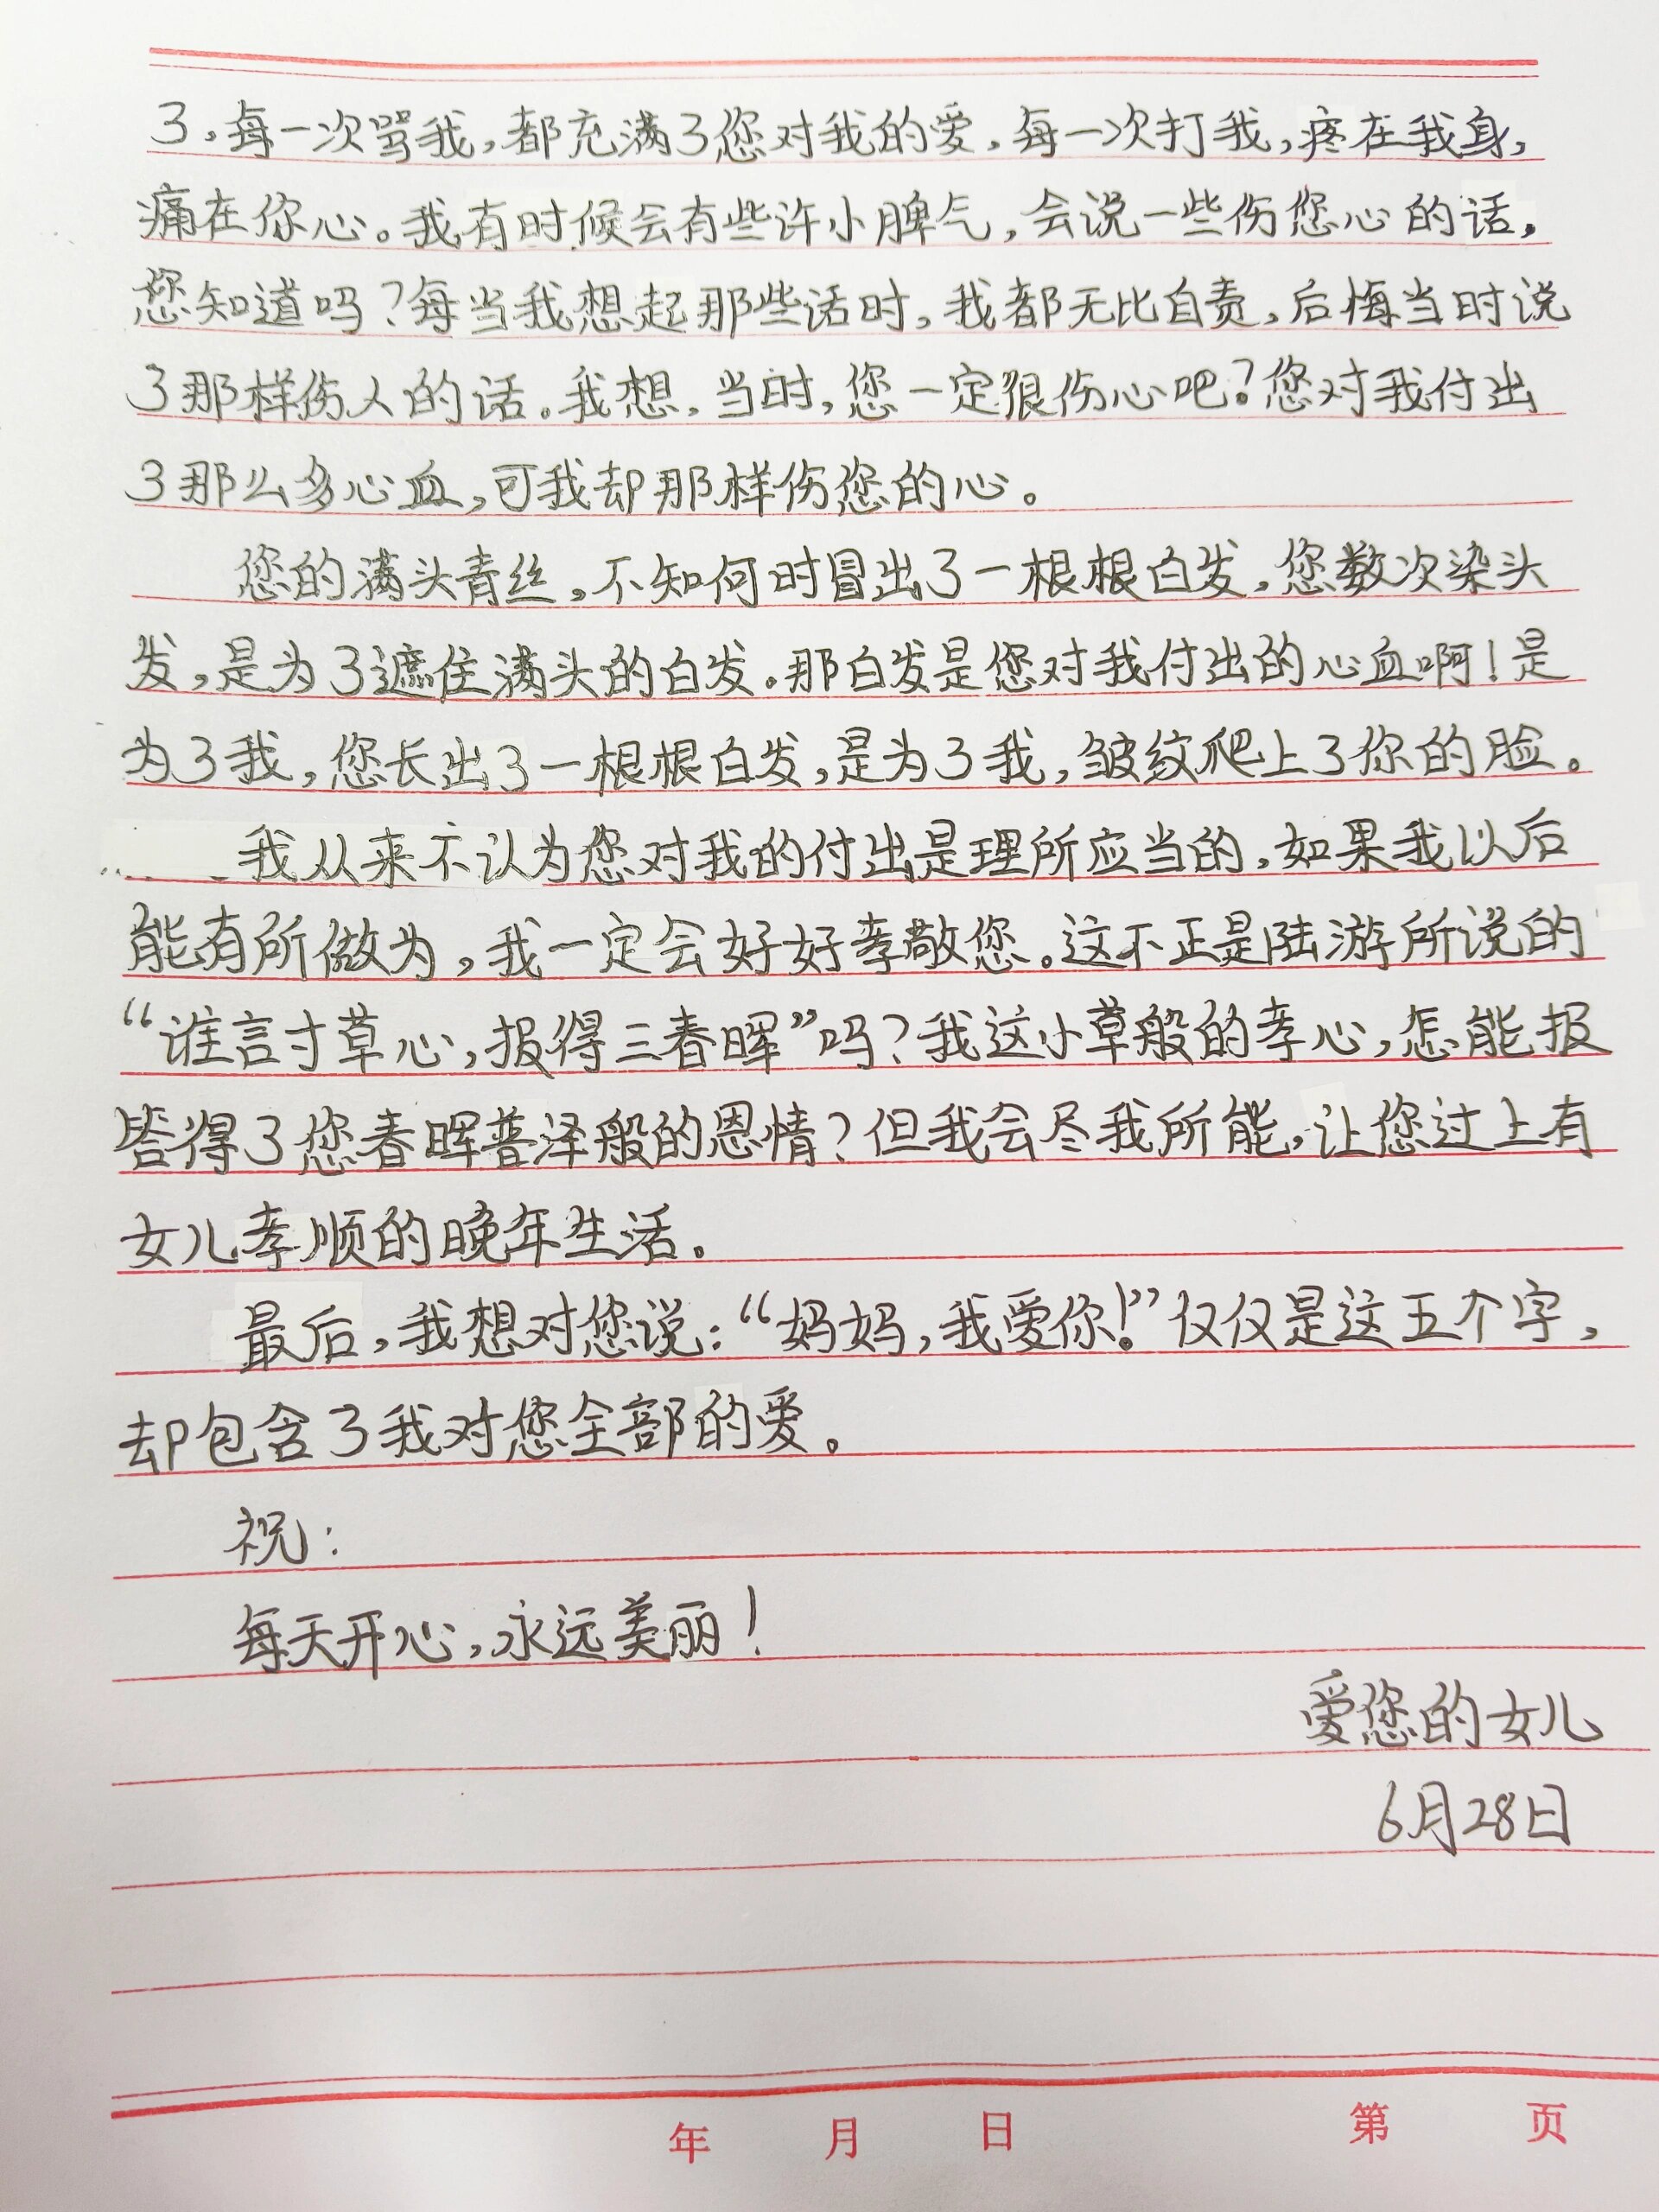 了，每一次骂我，都充满了您对我的爱，每一次打我，疼在我身，
痛在你心。我有时候会有些许小脾气，会说一些伤您心的话，
您知道吗？每当我想起那些话时，我都无比自责，后悔当时说
了那样伤人的话。我想，当时，您一定很伤心吧？您对我付出
了那么多心血，可我却那样伤您的心。
您的满头青丝，不知何时冒出了一根根白发，您数次染头
发，是为了遮住满头的白发。那白发是您对我付出的心血啊！是
为了我，您长出了一根根白发，是为了我，皱纹爬上了你的脸。
我从来不认为您对我的付出是理所应当的，如果我以后
能有所做为，我一定会好好孝敬您。这不正是陆游所说的
“谁言寸草心，报得三春晖”吗？我这小草般的孝心，怎能报
答得了您春晖普泽般的恩情？但我会尽我所能，让您过上有
女儿孝顺的晚年生活。
最后，我想对您说：“妈妈，我爱你！”仅仅是这五个字，
却包含了我对您全部的爱。
祝：
每天开心，永远美丽！
爱您的女儿
6月28日
年 月 日 第 页